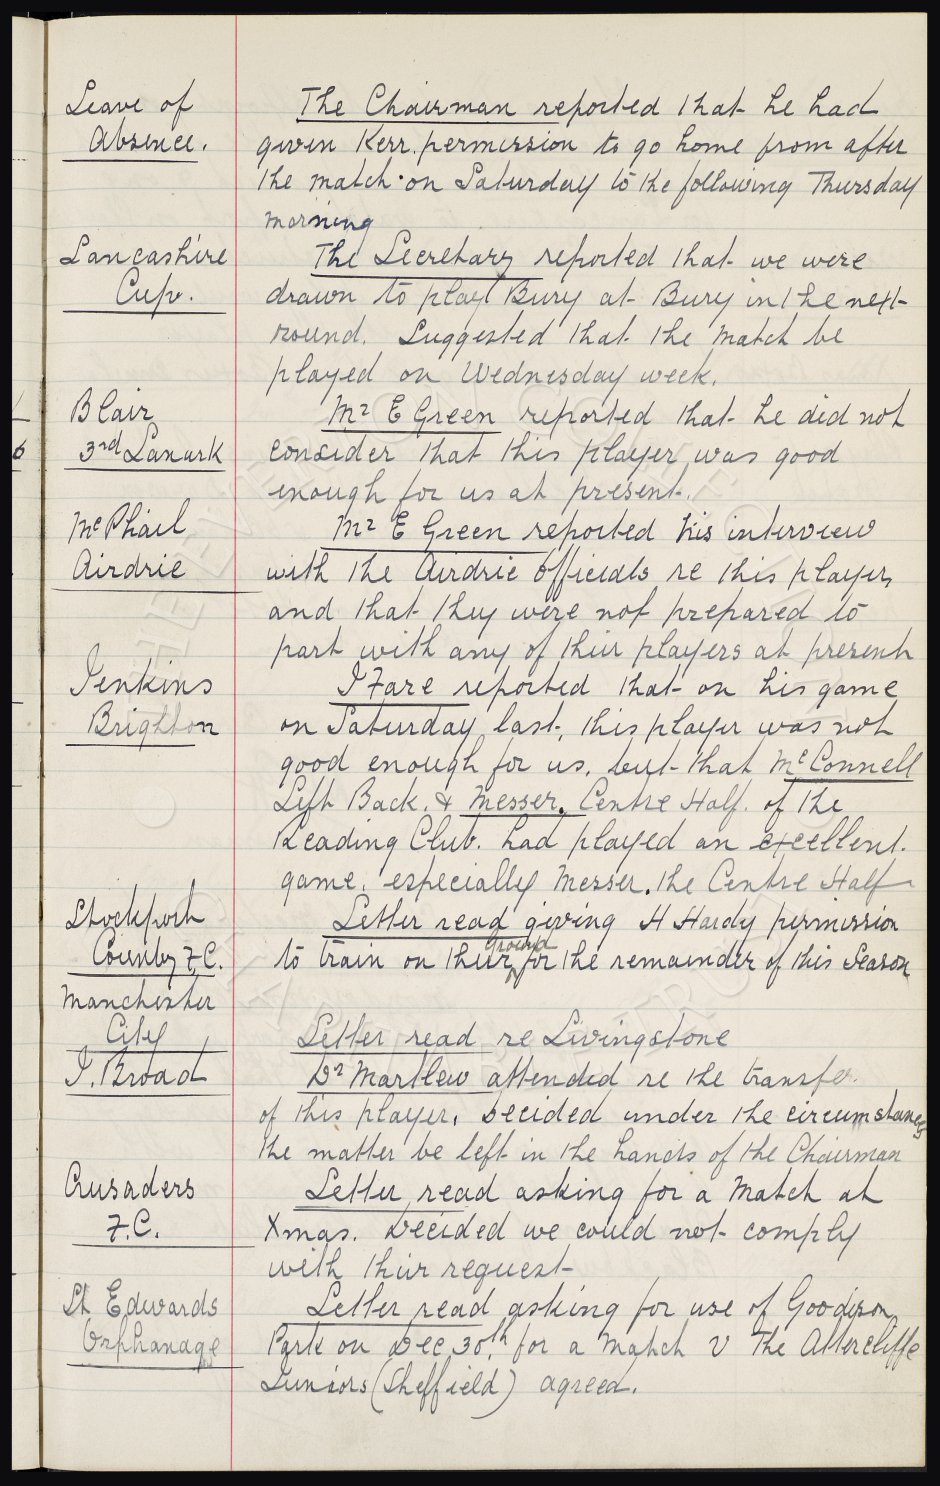 Leave of
Absence.
The Chairman reported that he had
given Kerr. permission to go home from after
the match on Saturday to the following Thursday
morning
Lancashire
Cup.
The Secretary reported that we were
drawn to play Bury at Bury in the next
round. Suggested that the match be
played on Wednesday week.
Blair
3rd Lanark
Mr E Green reported that he did not
consider that this player was good
enough for us at present.
McPhail
Airdrie
Mr E Green reported his interview
with the Airdrie Officials re this player,
and that they were not prepared to
part with any of their players at present
Jenkins
Brighton
I Fare reported that on his game
on Saturday last, this player was not
good enough for us, but that McConnell
Left Back. & Messer. Centre Half. of the
Reading Club. had played an excellent.
game, especially Messer. the Centre Half
Stockport
County F.C.
Letter read giving H Hardy permission
to train on their ground for the remainder of this Season
Manchester
City
Letter read re Livingstone
J. Broad
Dr Martlew attended re the transfer.
of this player. Decided under the circumstances
the matter be left in the hands of the Chairman
Crusaders
F.C.
Letter read asking for a Match at
Xmas. Decided we could not comply
with their request
St Edwards
Orphanage
Letter read asking for use of Goodison
Park on Dec 30th for a Match V The Attercliffe
Juniors (Sheffield) agreed.